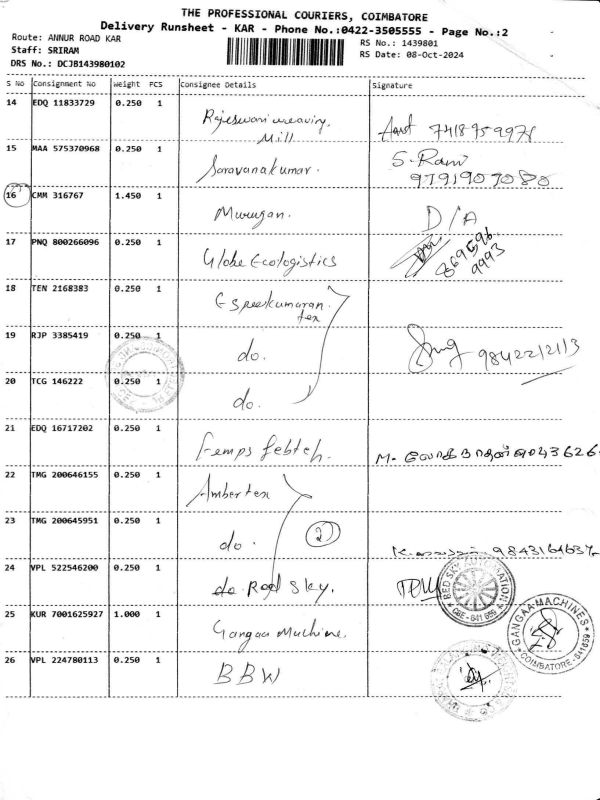 THE PROFESSIONAL COURIERS, COIMBATORE
Delivery Runsheet - KAR - Phone No.:0422-3505555 - Page No.:2
Route: ANNUR ROAD KAR
RS No.: 1439801
Staff: SRIRAM
RS Date: 08-Oct-2024
DRS No.: DCJB143980102
S No Consignment No Weight PCS Consignee Details Signature
14 EDQ 11833729 0.250 1 Rajeswari weaving Mill 7418959978
15 MAA 575370968 0.250 1 Saravanakumar. S. Ram 9791907080
16 CMM 316767 1.450 1 Murugan. D/A
17 PNQ 800266096 0.250 1 Globe Ecologistics 869596 9993
18 TEN 2168383 0.250 1 tex
19 RJP 3385419 0.250 1 do. 9842212113
20 TCG 146222 0.250 1 do.
21 EDQ 16717202 0.250 1 M. லோகநாதன்
22 TMG 200646155 0.250 1 Amber tex
23 TMG 200645951 0.250 1 do. 2
24 VPL 522546200 0.250 1 do Red Sky.
RED SKY AUTOMATION
CBE - 641 659
25 KUR 7001625927 1.000 1 Gangaa Machine.
GANGAA MACHINES
COIMBATORE - 641659
26 VPL 224780113 0.250 1 BBW